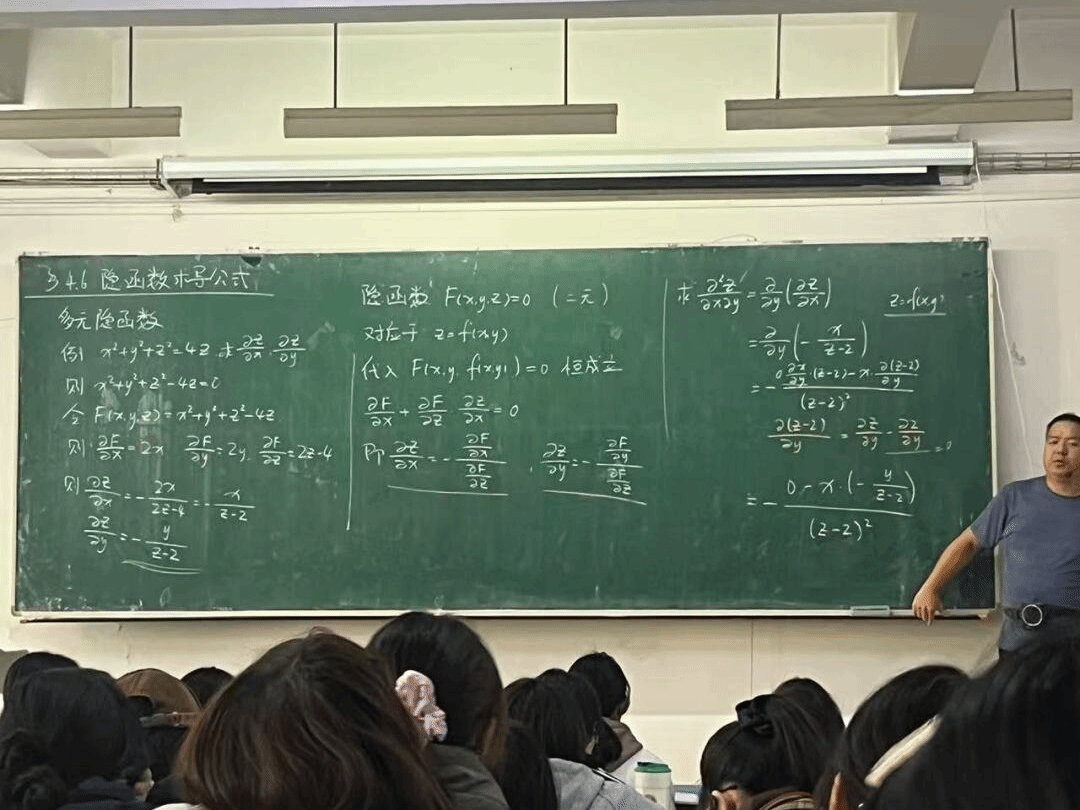 §4.6 隐函数求导公式
多元隐函数
例 x²+y²+z²=4z 求 ∂z/∂x, ∂z/∂y
则 x²+y²+z²-4z=0
令 F(x,y,z)=x²+y²+z²-4z
则 ∂F/∂x=2x ∂F/∂y=2y, ∂F/∂z=2z-4
则 ∂z/∂x=-2x/(2z-4)=-x/(z-2)
∂z/∂y=-y/(z-2)
隐函数 F(x,y,z)=0 (二元)
对应于 z=f(x,y)
代入 F(x,y,f(x,y))=0 恒成立
∂F/∂x+∂F/∂z ∂z/∂x=0
即 ∂z/∂x=-(∂F/∂x)/(∂F/∂z), ∂z/∂y=-(∂F/∂y)/(∂F/∂z)
求 ∂²z/∂x∂y=∂/∂y(∂z/∂x) z=f(x,y)
=∂/∂y(-x/(z-2))
=-(∂x/∂y·(z-2)-x·∂(z-2)/∂y)/(z-2)²
∂(z-2)/∂y=∂z/∂y-∂2/∂y=0
=-(0-x·(-y/(z-2)))/(z-2)²